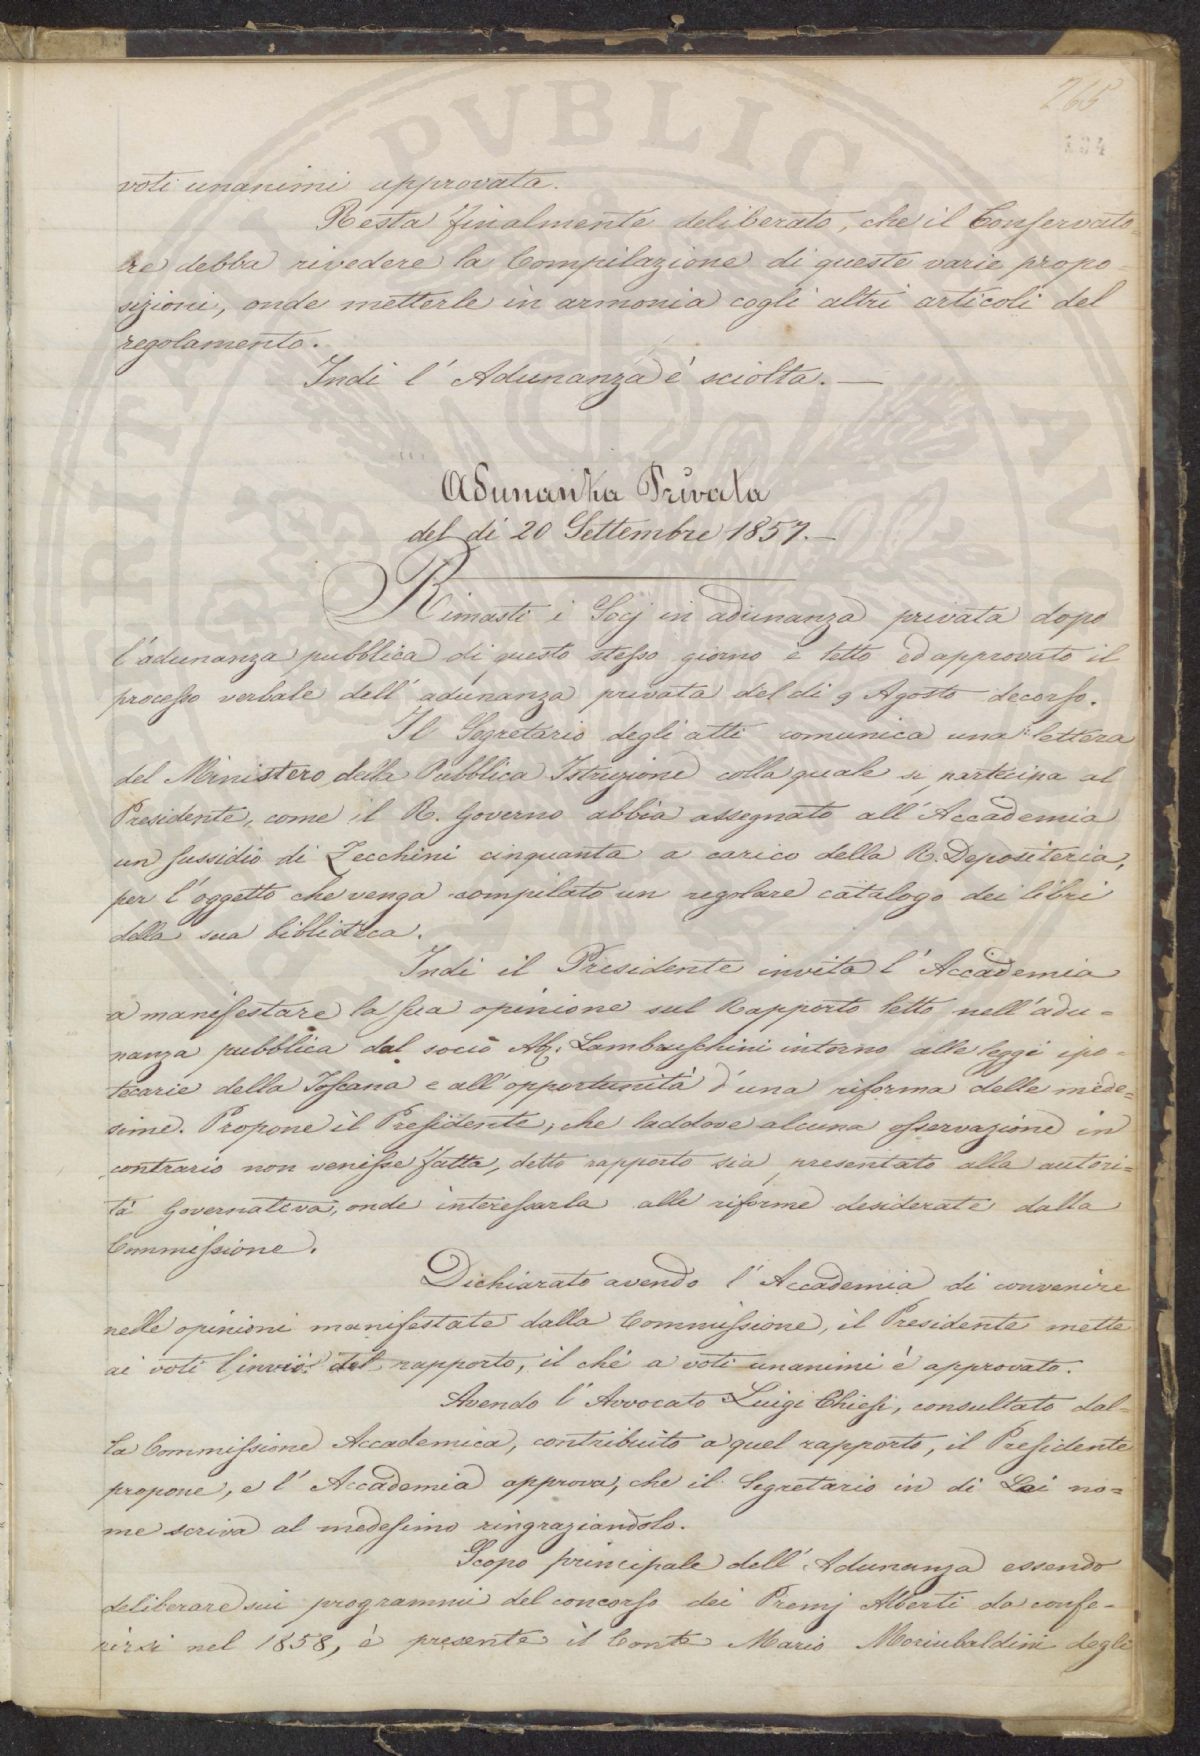 265
134
voti unanimi approvata.
Resta finalmente deliberato, che il Conservato-
re debba rivedere la Compilazione di queste varie propo-
sizioni, onde metterle in armonia cogli altri articoli del
regolamento.
Indi l'Adunanza è sciolta. —
Adunanza Privata
del dì 20 Settembre 1857. —
Rimasti i Socj in adunanza privata dopo
l'adunanza pubblica di questo stesso giorno è letto ed approvato il
processo verbale dell'adunanza privata del dì 9 Agosto decorso.
Il Segretario degli atti comunica una lettera
del Ministero della Pubblica Istruzione colla quale si partecipa al
Presidente, come il R. Governo abbia assegnato all'Accademia
un sussidio di Zecchini cinquanta a carico della R. Depositeria,
per l'oggetto che venga compilato un regolare catalogo dei libri
della sua biblioteca.
Indi il Presidente invita l'Accademia
a manifestare la sua opinione sul Rapporto letto nell'adu-
nanza pubblica dal socio Ab. Lambruschini intorno alle leggi ipo-
tecarie della Toscana e all'opportunità d'una riforma delle mede-
sime. Propone il Presidente, che laddove alcuna osservazione in
contrario non venisse fatta, detto rapporto sia presentato alla autori-
tà governativa, onde interessarla alle riforme desiderate dalla
Commissione.
Dichiarato avendo l'Accademia di convenire
nelle opinioni manifestate dalla Commissione, il Presidente mette
ai voti l'invio del rapporto, il che a voti unanimi è approvato.
Avendo l'Avvocato Luigi Chiesi, consultato dal-
la Commissione Accademica, contribuito a quel rapporto, il Presidente
propone, e l'Accademia approva, che il Segretario in di Lei no-
me scriva al medesimo ringraziandolo.
Scopo principale dell'Adunanza essendo
deliberare sui programmi del concorso dei Premj Alberti da confe-
rirsi nel 1858, è presente il Conte Mario Moriubaldini degli